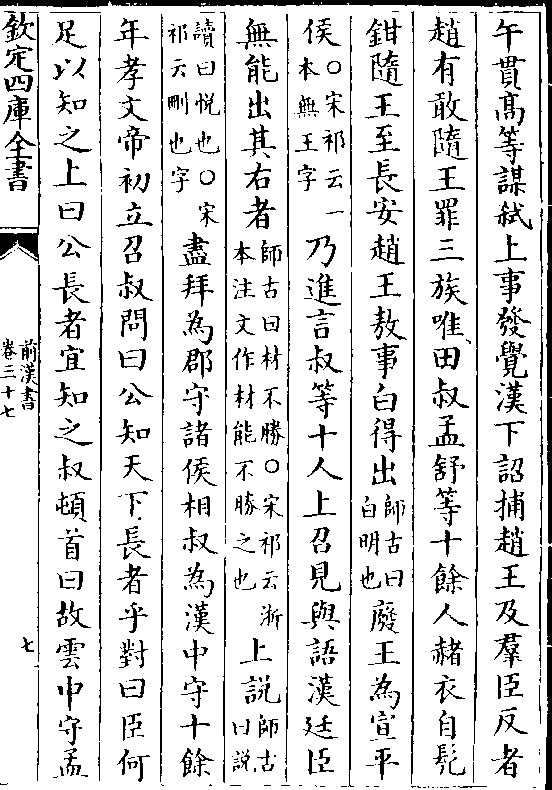 午貫髙等謀弑上事發覺漢下詔捕趙王及羣臣反者
趙有敢隨王罪三族唯田叔孟舒等十餘人赭衣自髠
鉗隨王至長安趙王敖事白得出師古曰白明也廢王為宣平
侯○宋祁云一本無王字乃進言叔等十人上召見與語漢廷臣
無能出其右者師古曰材不勝○宋祁云浙本注文作材能不勝之也上説師古曰説
讀曰悦也○宋祁云刪也字盡拜為郡守諸侯相叔為漢中守十餘
年孝文帝初立召叔問曰公知天下長者乎對曰臣何
足以知之上曰公長者宜知之叔頓首曰故雲中守孟
欽定四庫全書
前漢書
卷三十七
七